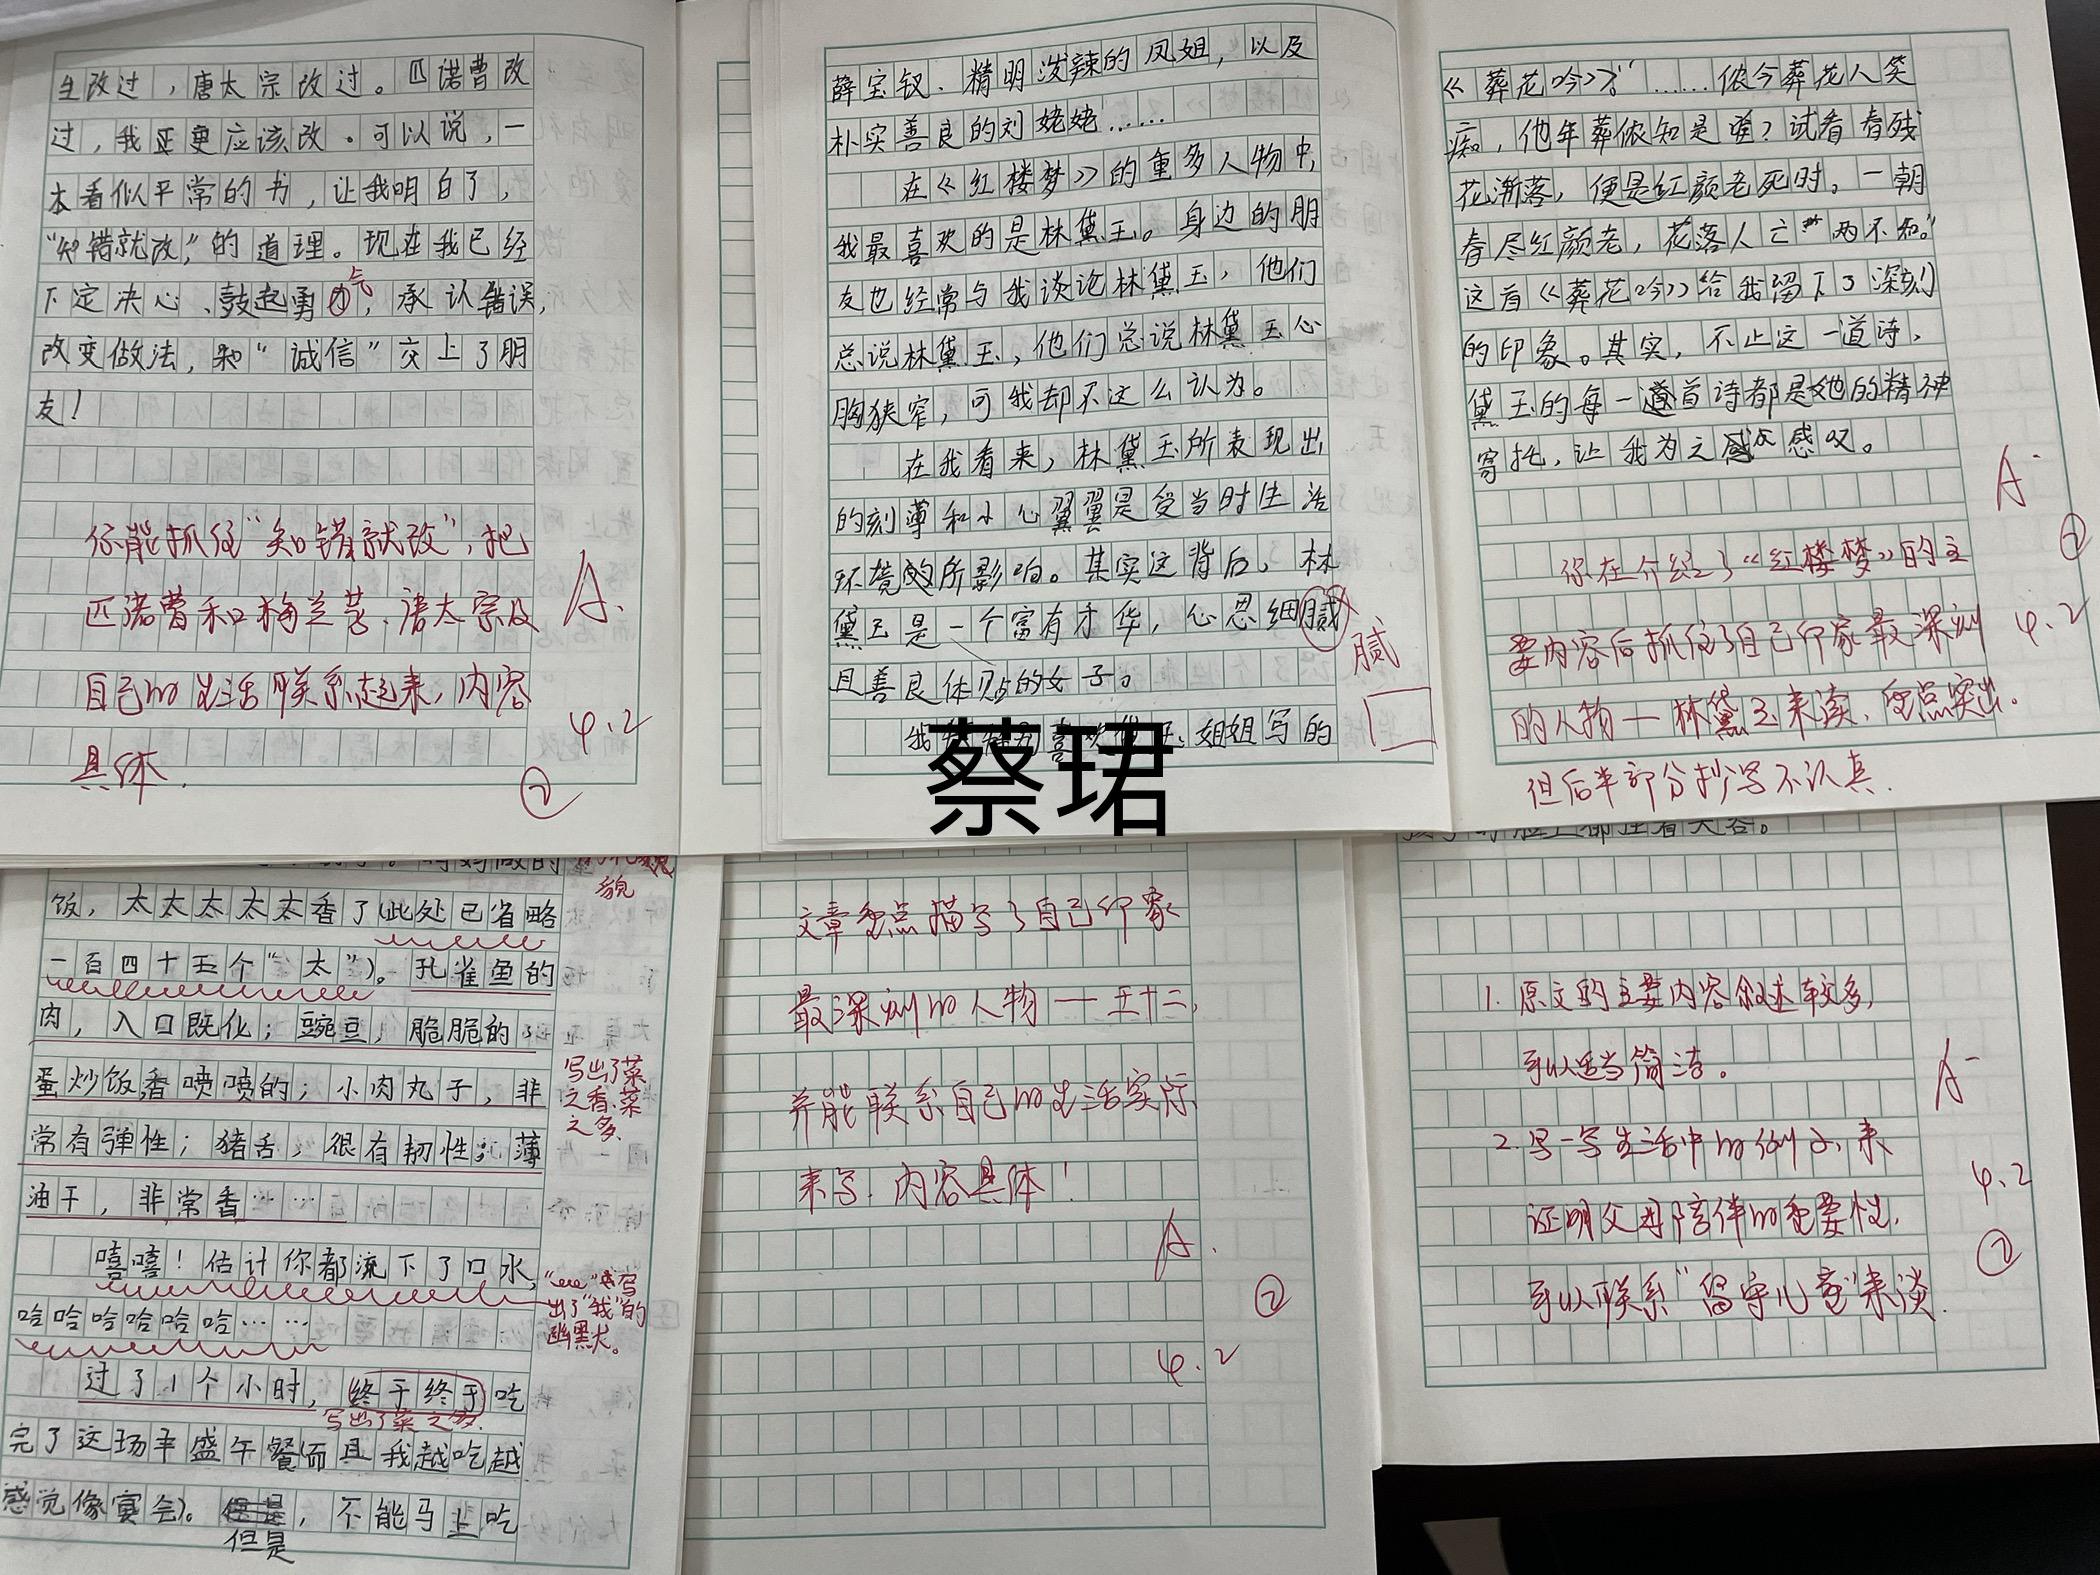 生改过，唐太宗改过。匹诺曹改
过，我更应该改。可以说，一
本看似平常的书，让我明白了，
“知错就改，”的道理。现在我已经
下定决心、鼓起勇气，承认错误，
改变做法，和“诚信”交上了朋
友！
你能抓住“知错就改”，把
匹诺曹和梅兰芳、唐太宗及
自己的生活联系起来，内容
具体．
A.
4.2
②
薛宝钗、精明泼辣的凤姐，以及
朴实善良的刘姥姥……
在《红楼梦》的重多人物中，
我最喜欢的是林黛玉。身边的朋
友也经常与我谈论林黛玉，他们
总说林黛玉，他们总说林黛玉心
胸狭窄，可我却不这么认为。
在我看来，林黛玉所表现出
的刻薄和小心翼翼是受当时生活
环境所影响。其实这背后，林
黛玉是一个富有才华，心思细腻
且善良体贴的女子。
腻
姐姐写的
蔡珺
《葬花吟》：“……侬今葬花人笑
痴，他年葬侬知是谁？试看春残
花渐落，便是红颜老死时。一朝
春尽红颜老，花落人亡两不知。”
这首《葬花吟》给我留下了深刻
的印象。其实，不止这一道诗，
黛玉的每一首诗都是她的精神
寄托，让我为之感叹。
A-
②
你在介绍了《红楼梦》的主
要内容后抓住了自己印象最深刻
4.2
的人物—林黛玉来谈，重点突出．
但后半部分抄写不认真．
貌
饭，太太太太太香了（此处已省略
一百四十五个“太”）。孔雀鱼的
肉，入口既化；豌豆，脆脆的；
蛋炒饭香喷喷的；小肉丸子，非
常有弹性；猪舌，很有韧性；薄
油干，非常香……
写出了菜
之香、菜
之多．
嘻嘻！估计你都流下了口水，
哈哈哈哈哈哈……
写
出了“我”的
幽默。
过了1个小时，终于终于吃
写出了菜之多．
完了这场丰盛午餐（而且我越吃越
感觉像宴会）。，不能马上吃
但是
文章重点描写了自己印象
最深刻的人物——王十二，
并能联系自己的生活实际
来写．内容具体！
A.
②
4.2
1. 原文的主要内容叙述较多，
可以适当简洁。
A-
2. 写一写生活中的例子，来
4.2
证明父母陪伴的重要性，
②
可以联系“留守儿童”来谈．